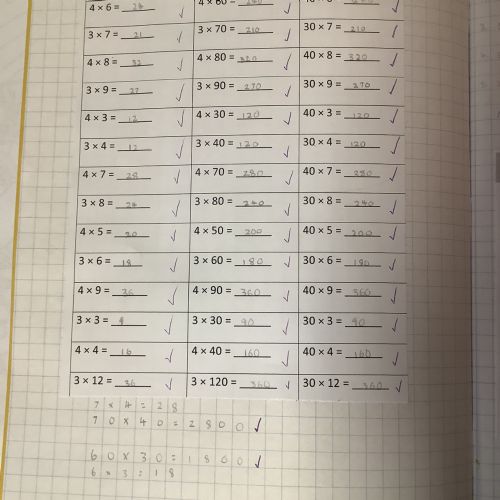 4 × 6 = 24 4 × 60 = 240
3 × 7 = 21 3 × 70 = 210 30 × 7 = 210
4 × 8 = 32 4 × 80 = 320 40 × 8 = 320
3 × 9 = 27 3 × 90 = 270 30 × 9 = 270
4 × 3 = 12 4 × 30 = 120 40 × 3 = 120
3 × 4 = 12 3 × 40 = 120 30 × 4 = 120
4 × 7 = 28 4 × 70 = 280 40 × 7 = 280
3 × 8 = 24 3 × 80 = 240 30 × 8 = 240
4 × 5 = 20 4 × 50 = 200 40 × 5 = 200
3 × 6 = 18 3 × 60 = 180 30 × 6 = 180
4 × 9 = 36 4 × 90 = 360 40 × 9 = 360
3 × 3 = 9 3 × 30 = 90 30 × 3 = 90
4 × 4 = 16 4 × 40 = 160 40 × 4 = 160
3 × 12 = 36 3 × 120 = 360 30 × 12 = 360
7 × 4 = 28
70 × 40 = 2800
60 × 30 = 1800
6 × 3 = 18